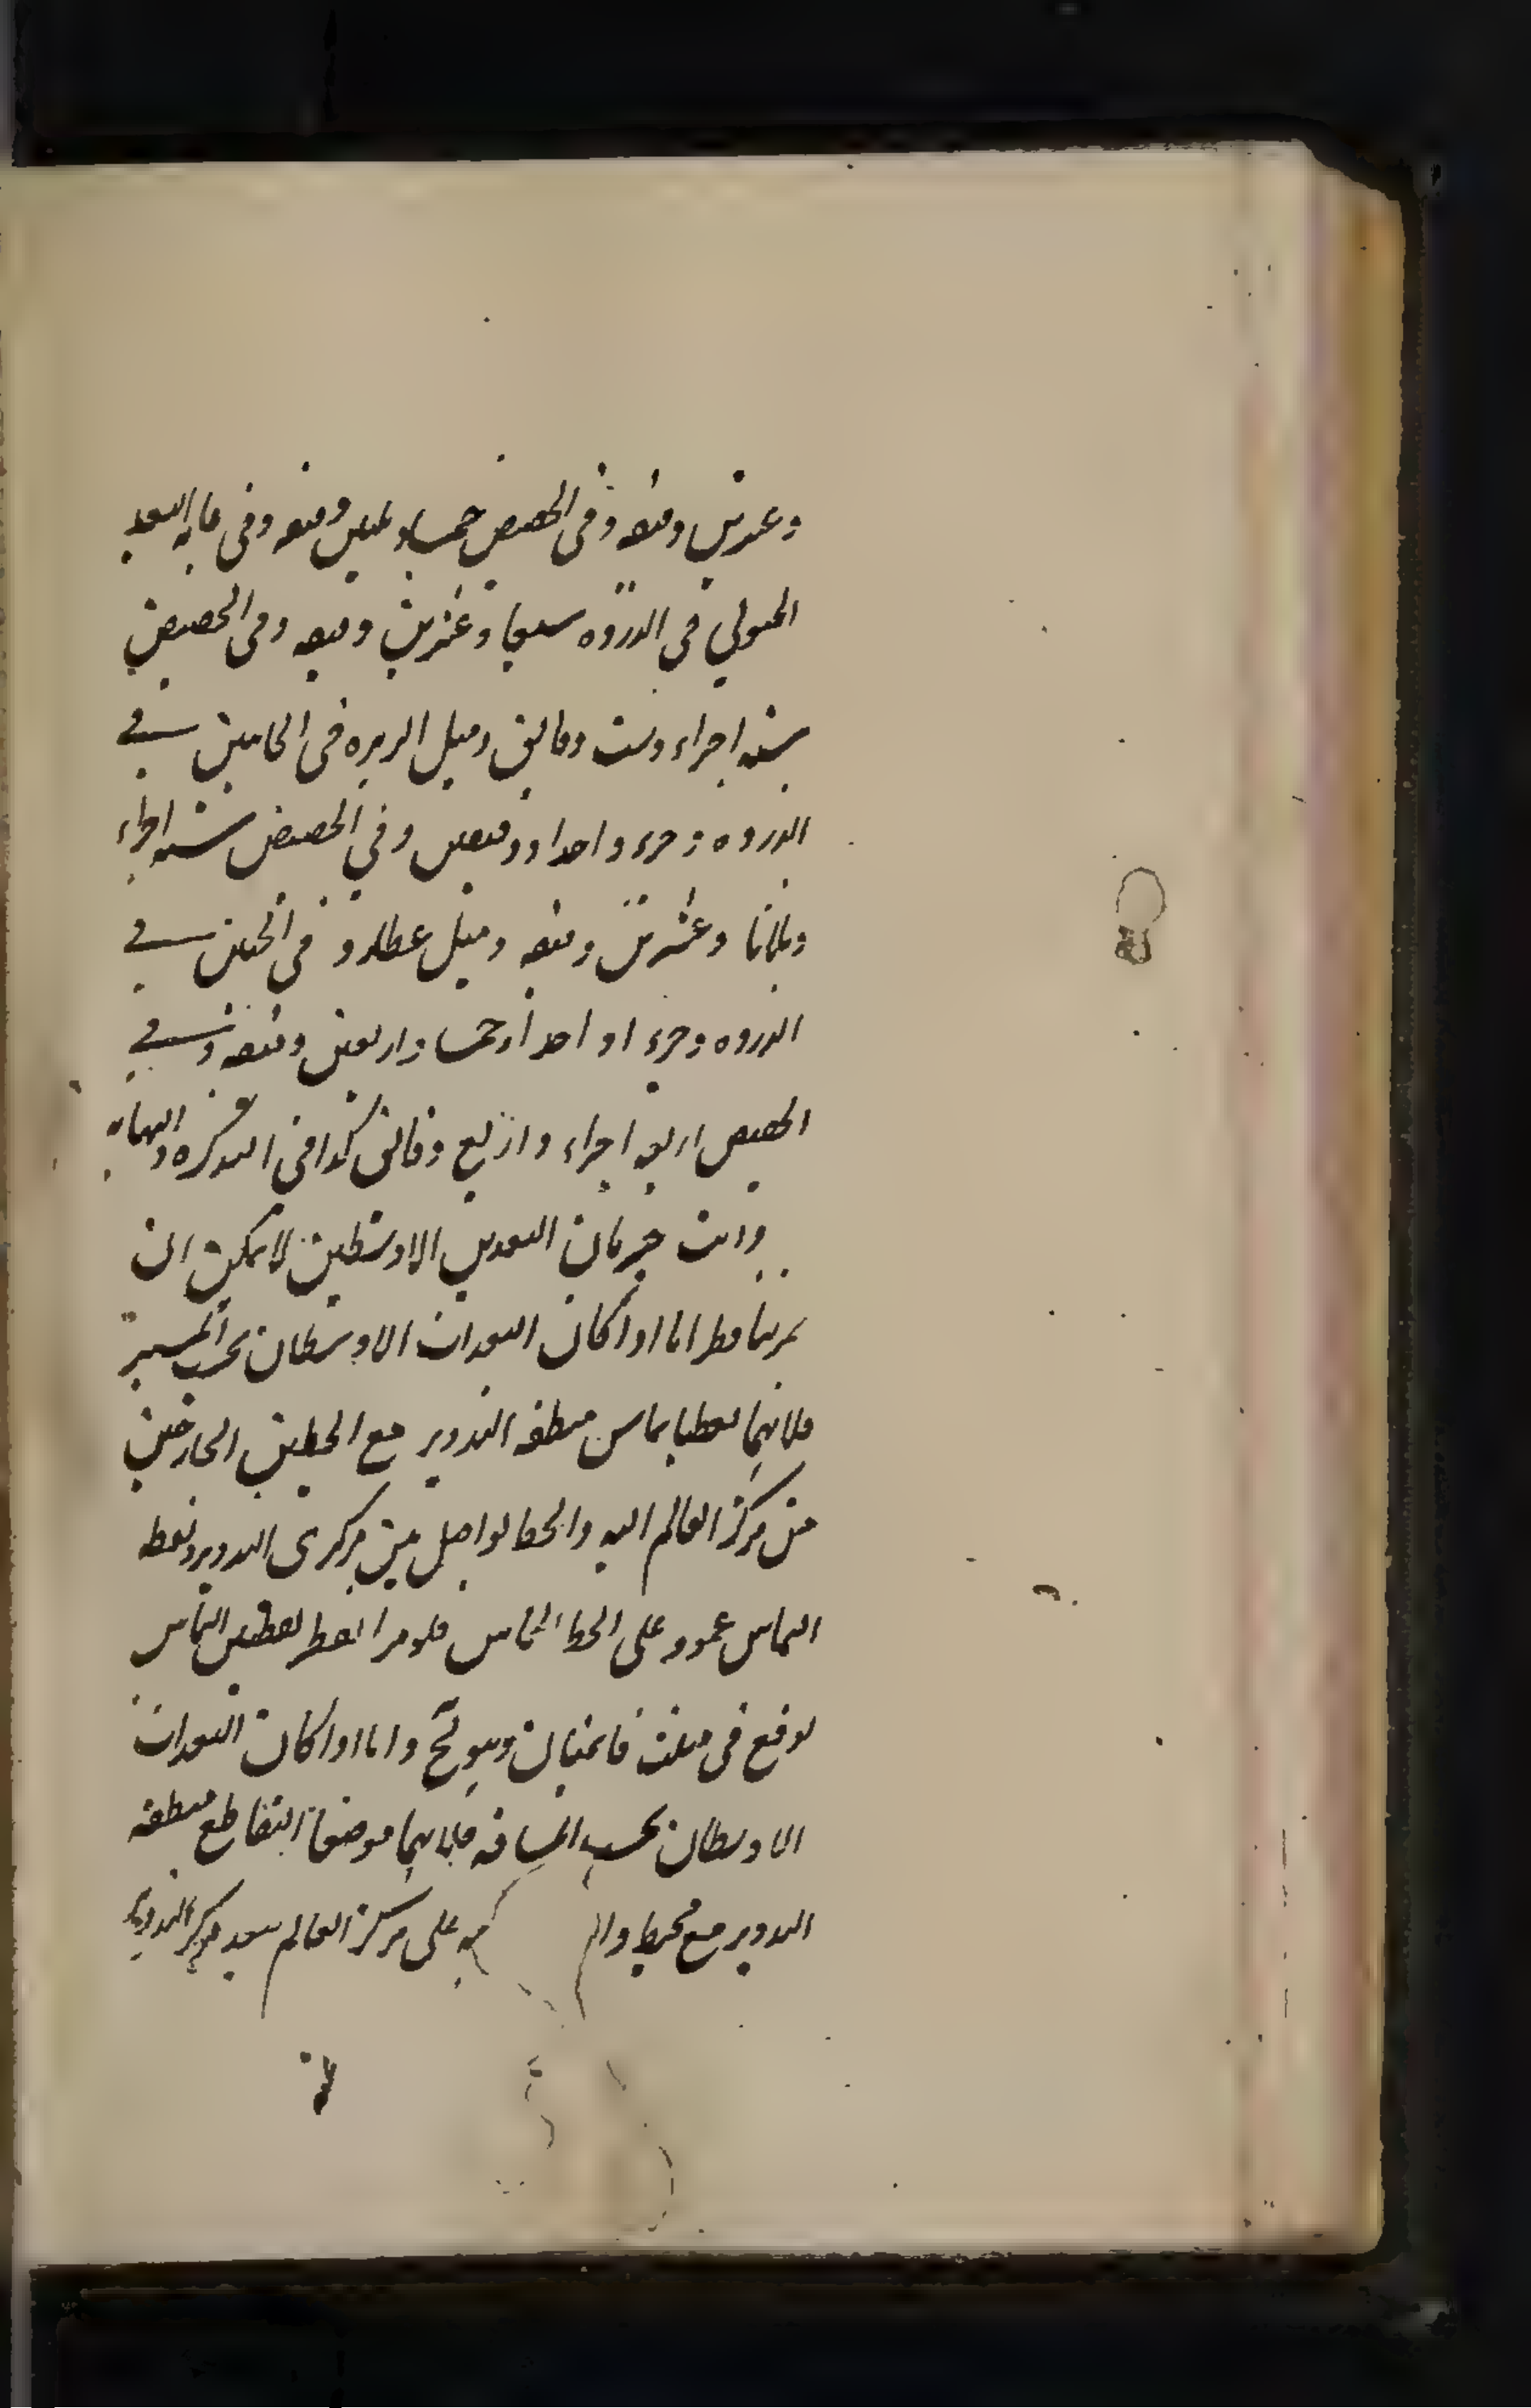 وعشرين دقيقة وفي الحضيض خمسا وثلثين دقيقة وفي غاية البعد
الجنوبي في الذروة سبعا وعشرين دقيقة وفي الحضيض
ستة اجزاء وست دقايق وميل الزهرة في الجانبين في
الذروة جزء واحدا ودقيقتين وفي الحضيض ستة اجزاء
وثلاثا وعشرين دقيقة وميل عطارد في الجهتين في
الذروة جزء ا واحدا وخمسا واربعين دقيقة وفي
الحضيض اربعة اجزاء واربع دقائق كذا في التذكرة والنهاية
وانت خبير بان البعدين الاوسطين لا يمكن ان
بحسب المسير اما اذا كان البعدان الاوسطان
فلانهما نقطتا تماس منطقة التدوير مع الخطين الخارجين
من مركز العالم اليه والخط الواصل بين مركزي التدوير ونقطة
التماس عمود على الخط المماس فلو مرا القطر بنقطتي التماس
لوقع في مثلث قائمتان وهو مح واما اذا كان البعدان
الاوسطان بحسب المسافة فلانهما موضعا التقاطع منطقة
التدوير مع محيط دائرة على مركز العالم ببعد مركز التدوير